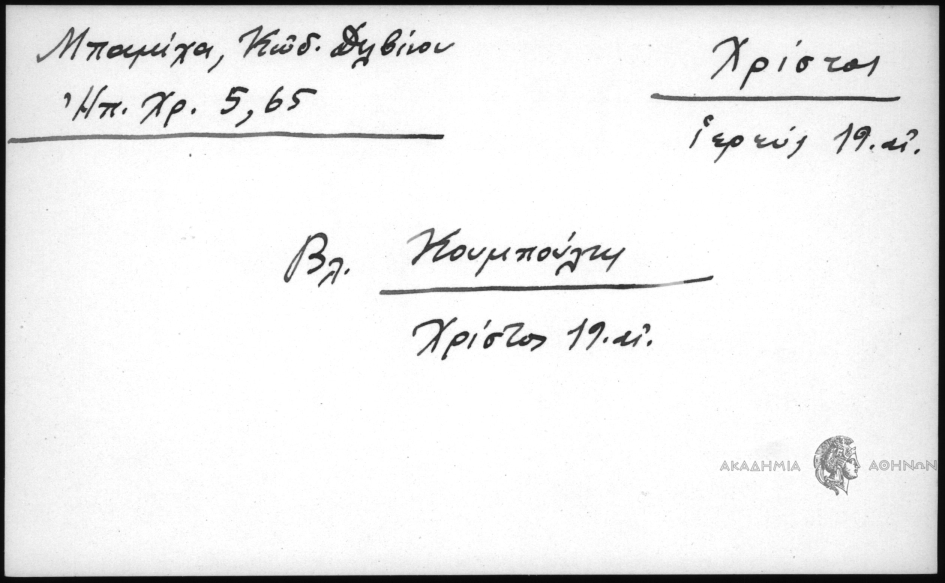 Μπαμίχα, Κώδ. Δελβίνου
Ἠπ. Χρ. 5, 65
Χρίστος
ἱερεύς 19. αἰ.
Βλ. Κουμπούλης
Χρίστος 19. αἰ.
ΑΚΑΔΗΜΙΑ ΑΘΗΝΩΝ